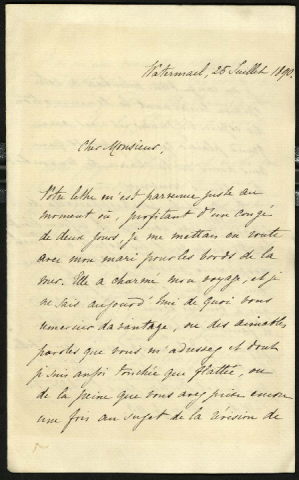 Watermael, 26 Juillet 1890.
Cher Monsieur,
Votre lettre m'est parvenue juste au
moment où, profitant d'un congé
de deux jours, je me mettais en route
avec mon mari pour les bords de la
mer. Elle a charmé mon voyage, et je
ne sais aujourd'hui de quoi vous
remercier davantage, ou des aimables
paroles que vous m'adressez et dont
je suis aussi touchée que flattée, ou
de la peine que vous avez prise encore
une fois au sujet de la révision de